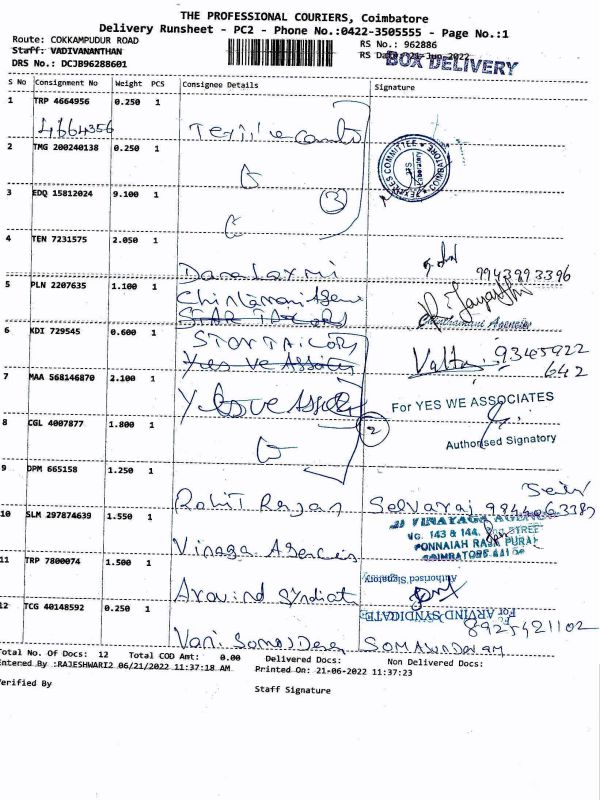 THE PROFESSIONAL COURIERS, Coimbatore
Delivery Runsheet - PC2 - Phone No.:0422-3505555 - Page No.:1
Route: COKKAMPUDUR ROAD
RS No.: 962886
Staff: VADIVANANTHAN
RS Date: 21-Jun-2022
BOX DELIVERY
DRS No.: DCJB96288601
S No Consignment No Weight PCS Consignee Details Signature
1 TRP 4664956 0.250 1
4664356
2 TMG 200240138 0.250 1
COMMITTEE
COIMBATORE
3 EDQ 15812024 9.100 1
3
4 TEN 7231575 2.050 1
Danalaxmi 9943993396
5 PLN 2207635 1.100 1
Chintamani Agenc
Chinthamani Agencies
STAR TAILORS
6 KDI 729545 0.600 1
STAR TAILORS
Yes We Assots
9345922
642
7 MAA 568146870 2.100 1
For YES WE ASSOCIATES
8 CGL 4007877 1.800 1
2
Authorised Signatory
9 DPM 665158 1.250 1
Rohit Rajan Selvaraj
10 SLM 297874639 1.550 1
VINAYAGA AGENCIES
No. 143 & 144, STREET
PONNAIAH RAJA PURAM
COIMBATORE
Vinaga Agencies
11 TRP 7800074 1.500 1
Authorised Signatory
Aravind Syndicat
12 TCG 40148592 0.250 1
For ARVIND SYNDICATE
8925421102
Vani Somasdaran SOMASUNDARAM
Total No. Of Docs: 12 Total COD Amt: 0.00 Delivered Docs: Non Delivered Docs:
Entered By :RAJESHWARI2 06/21/2022 11:37:18 AM Printed On: 21-06-2022 11:37:23
Verified By
Staff Signature